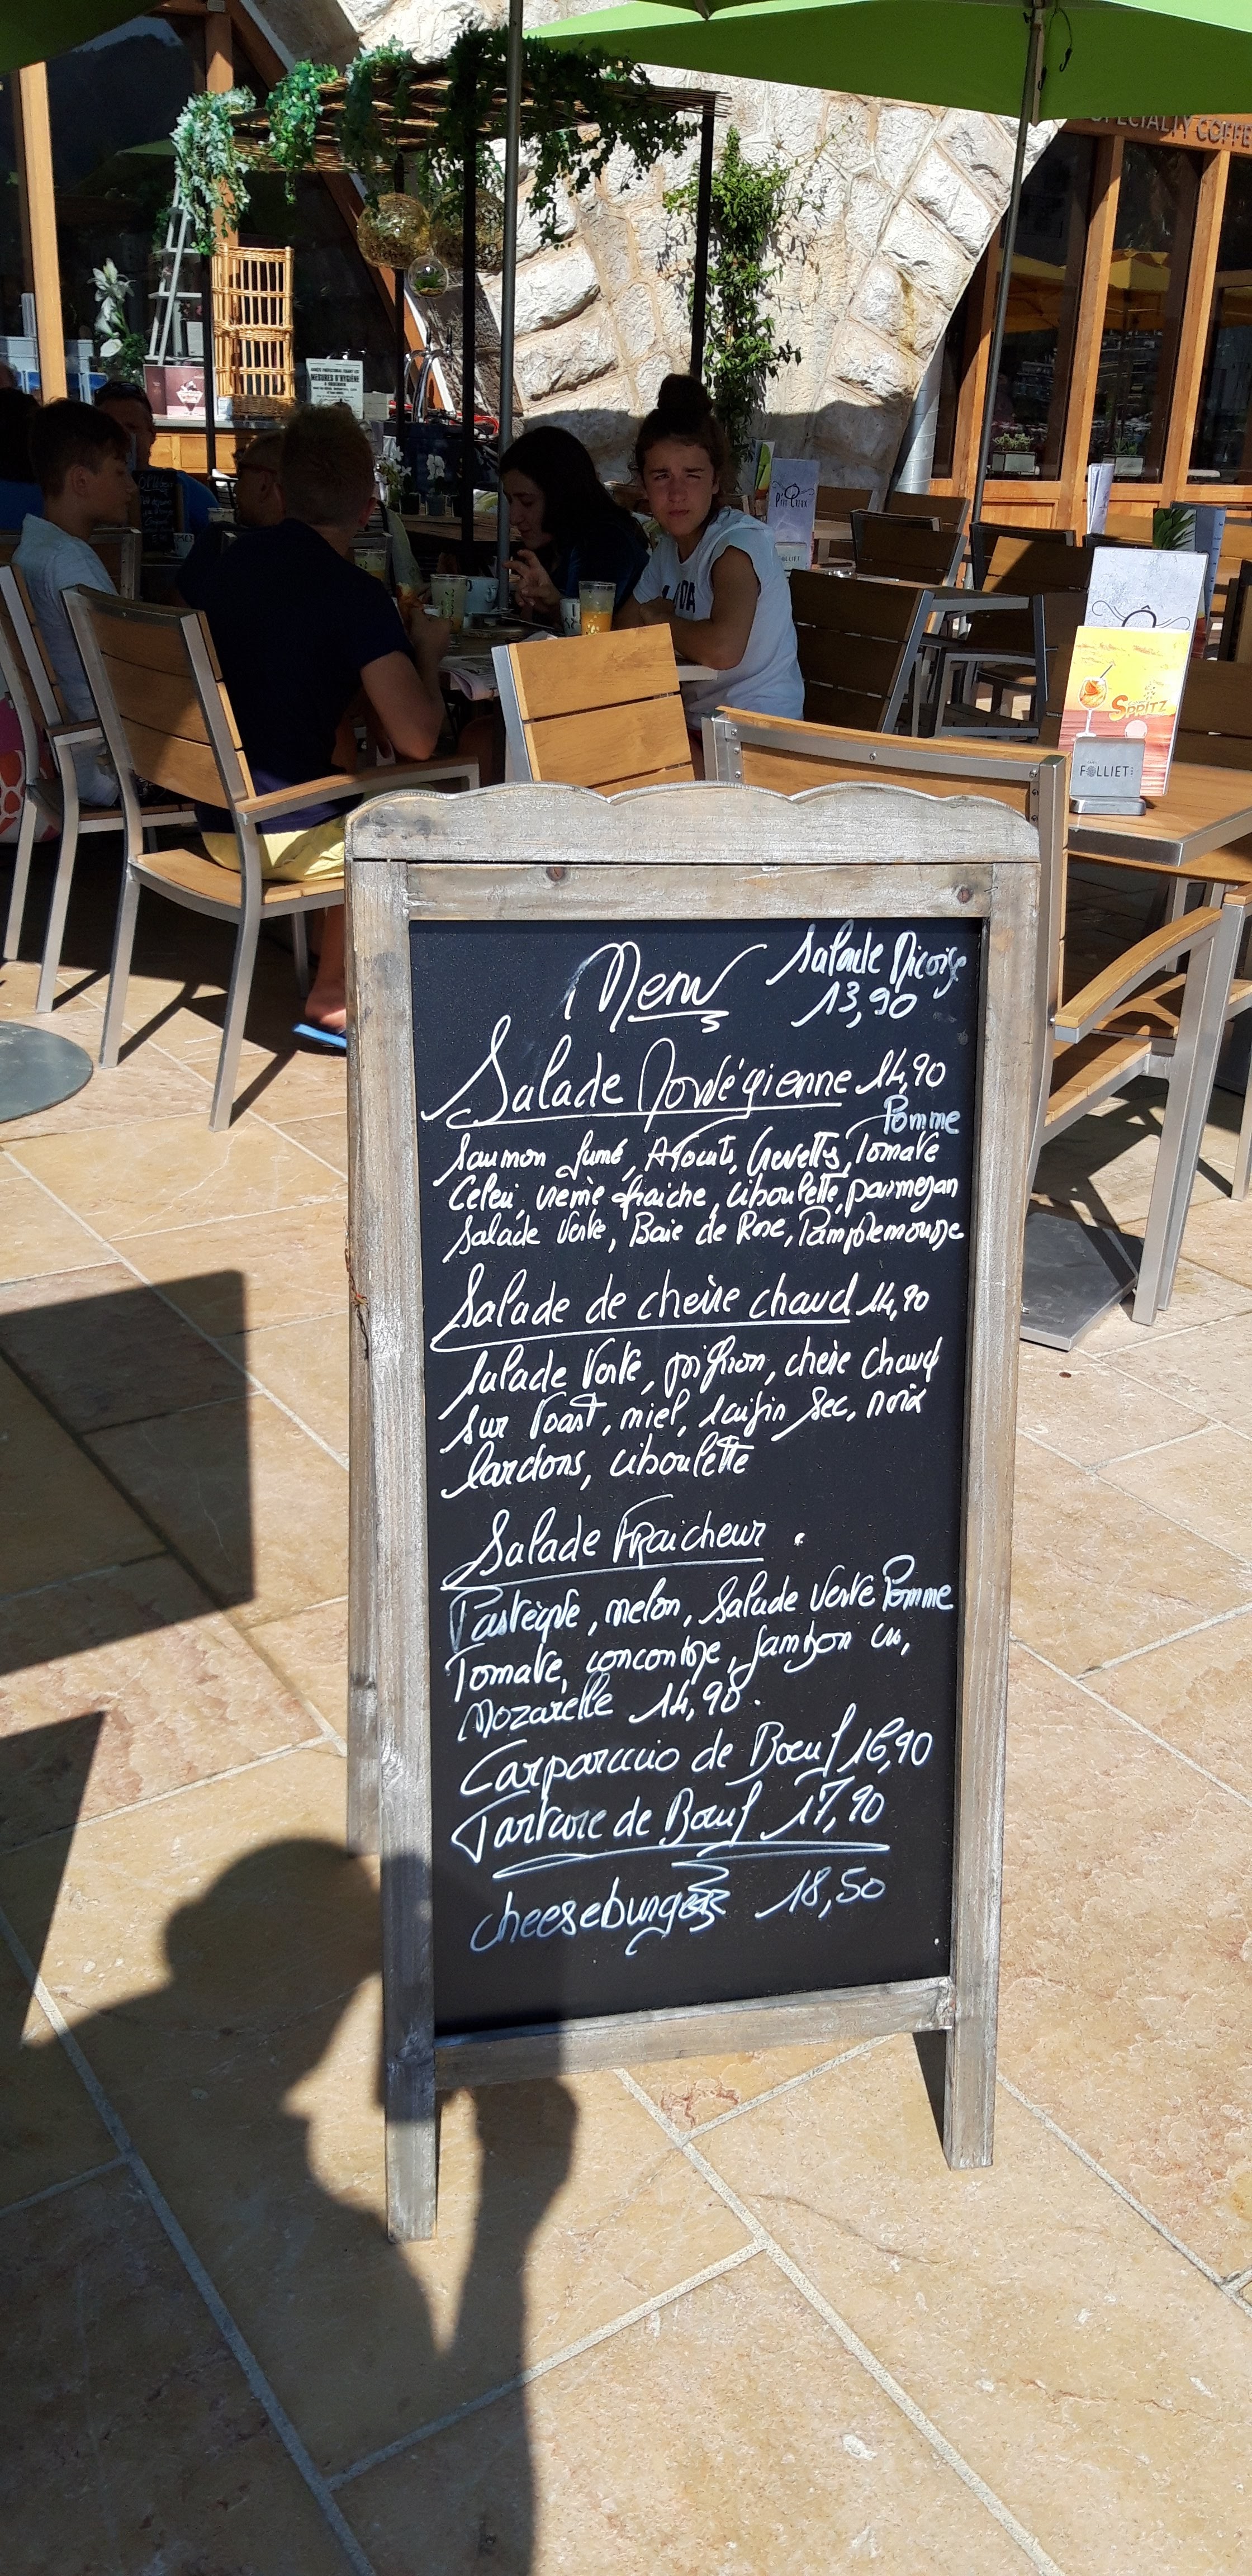 SPECIALTY COFFE
MESURES D'HYGIÈNE
P'tit Creux
SPRITZ
FOLLIET
Menu
Salade Niçoise
13,90
Salade Norvégienne 14,90
Pomme
Saumon fumé, Avocats, Crevettes, Tomate
Celeri, creme fraiche, ciboulette, parmesan
Salade Verte, Baie de Rose, Pamplemousse
Salade de chèvre chaud 14,90
Salade Verte, pignon, chèvre chaud
sur Toast, miel, raisin sec, noix
lardons, ciboulette
Salade Fraicheur
Pastèque, melon, Salade Verte Pomme
Tomate, concombre, jambon cru,
Mozarelle 14,90
Carparccio de Boeuf 16,90
Tartare de Boeuf 17,90
cheeseburger 18,50